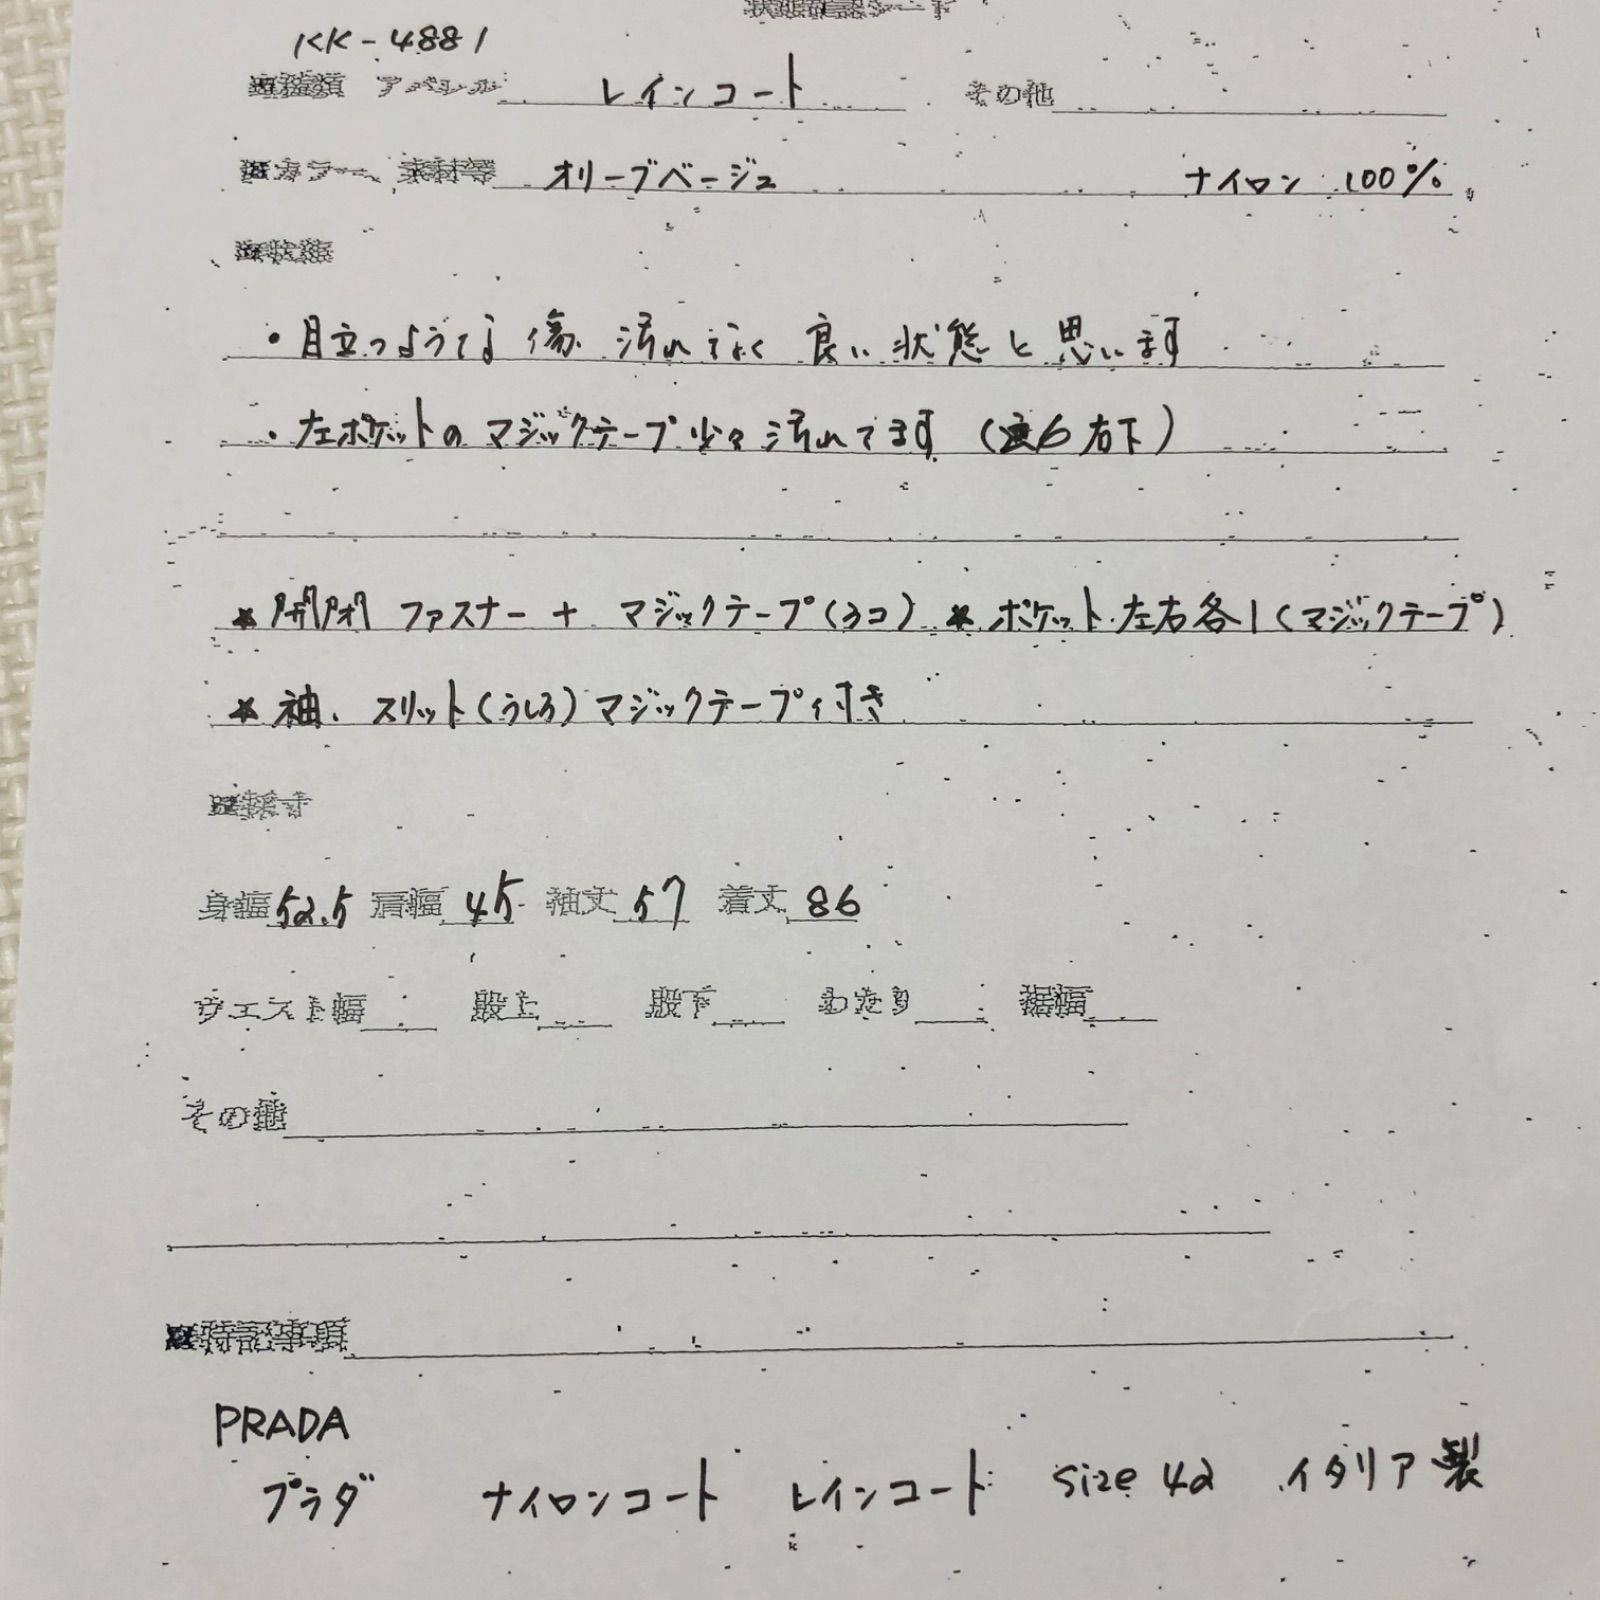 状態確認シート
KK-4881
■種類 アパレル レインコート その他
■カラー、素材等 オリーブベージュ ナイロン 100%
■状態
・目立つような傷 汚れなく 良い状態と思います
・左ポケットのマジックテープ少々汚れてます (右下)
★開閉 ファスナー + マジックテープ(3コ) ★ポケット左右各1(マジックテープ)
★袖、スリット(うしろ)マジックテープ付き
■採寸
身幅52.5 肩幅 45 袖丈 57 着丈 86
ウエスト幅 股上 股下 わたり 裾幅
その他
■特記事項
PRADA
プラダ ナイロンコート レインコート size 42 イタリア製